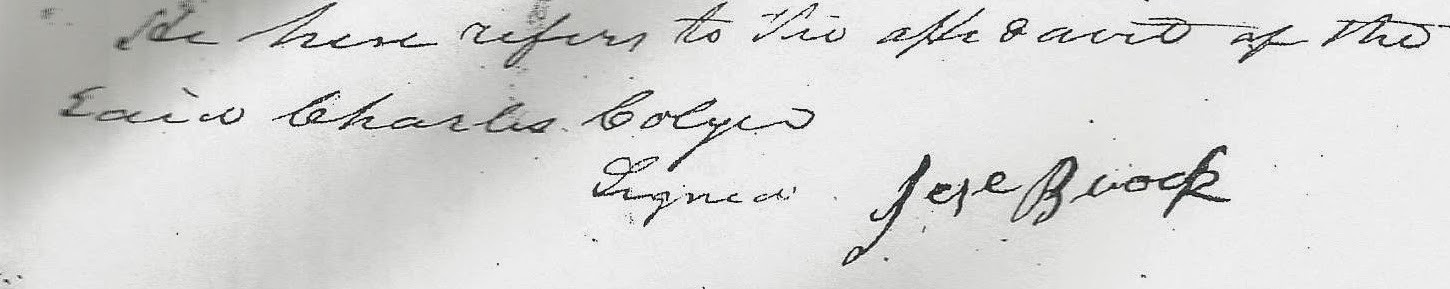 He here refers to the affidavit of the
Said Charles Colyer
Signed Jese Brock